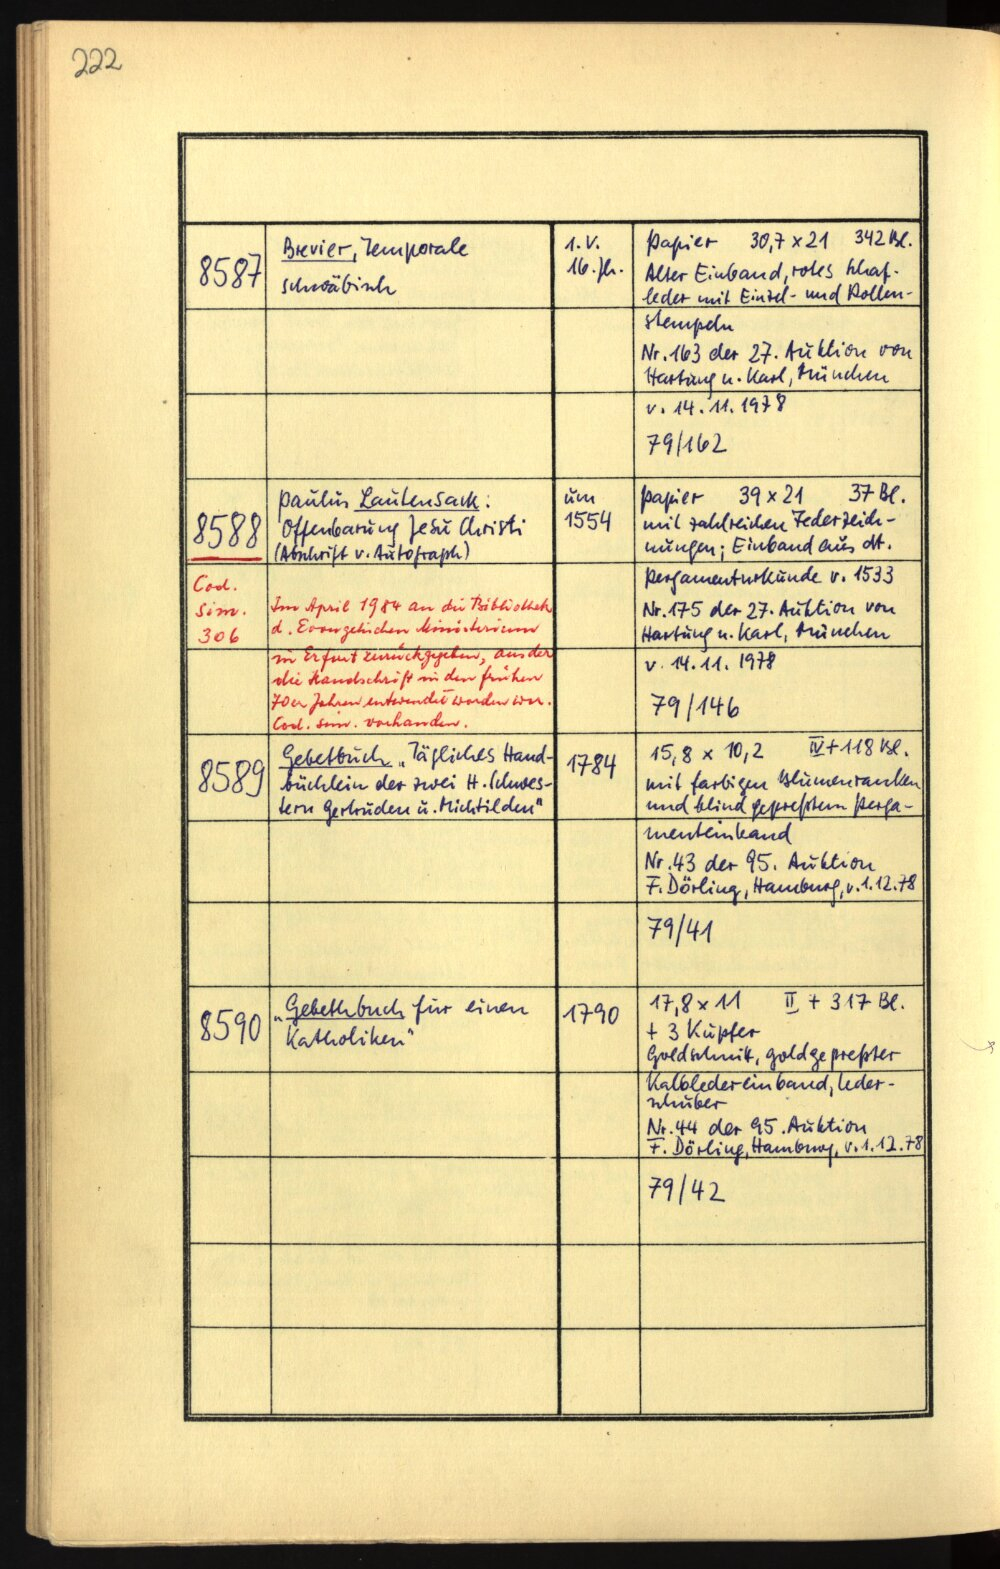 222
8587
Brevier, Temporale
schwäbisch
1. V.
16. Jh.
Papier 30,7 x 21 342 Bl.
Alter Einband, rotes Schaf-
leder mit Einzel- und Rollen-
stempeln
Nr. 163 der 27. Auktion von
Hartung u. Karl, München
v. 14. 11. 1978
79/162
8588
Paulus Lautensack:
Offenbarung Jesu Christi
(Abschrift v. Autograph)
um
1554
Papier 39 x 21 37 Bl.
mit zahlreichen Federzeich-
nungen; Einband aus dt.
Pergamenturkunde v. 1533
Nr. 175 der 27. Auktion von
Hartung u. Karl, München
v. 14. 11. 1978
79/146
Cod.
sim.
306
Im April 1984 an die Bibliothek
d. Evangelischen Ministerium
in Erfurt zurückgegeben, aus der
die Handschrift in den frühen
70er Jahren entwendet worden war.
Cod. sim. vorhanden.
8589
Gebetbuch „Tägliches Hand-
büchlein der zwei H. Schwes-
tern Gertruden u. Michtilden"
1784
15,8 x 10,2 IV + 118 Bl.
mit farbigen Blumenranken
und blind gepreßtem Perga-
menteinband
Nr. 43 der 95. Auktion
F. Dörling, Hamburg, v. 1.12.78
79/41
8590
„Gebethbuch für einen
Katholiken"
1790
17,8 x 11 II + 317 Bl.
+ 3 Kupfer
Goldschnitt, goldgepreßter
Kalbledereinband, Leder-
schuber
Nr. 44 der 95. Auktion
F. Dörling, Hamburg, v. 1.12.78
79/42